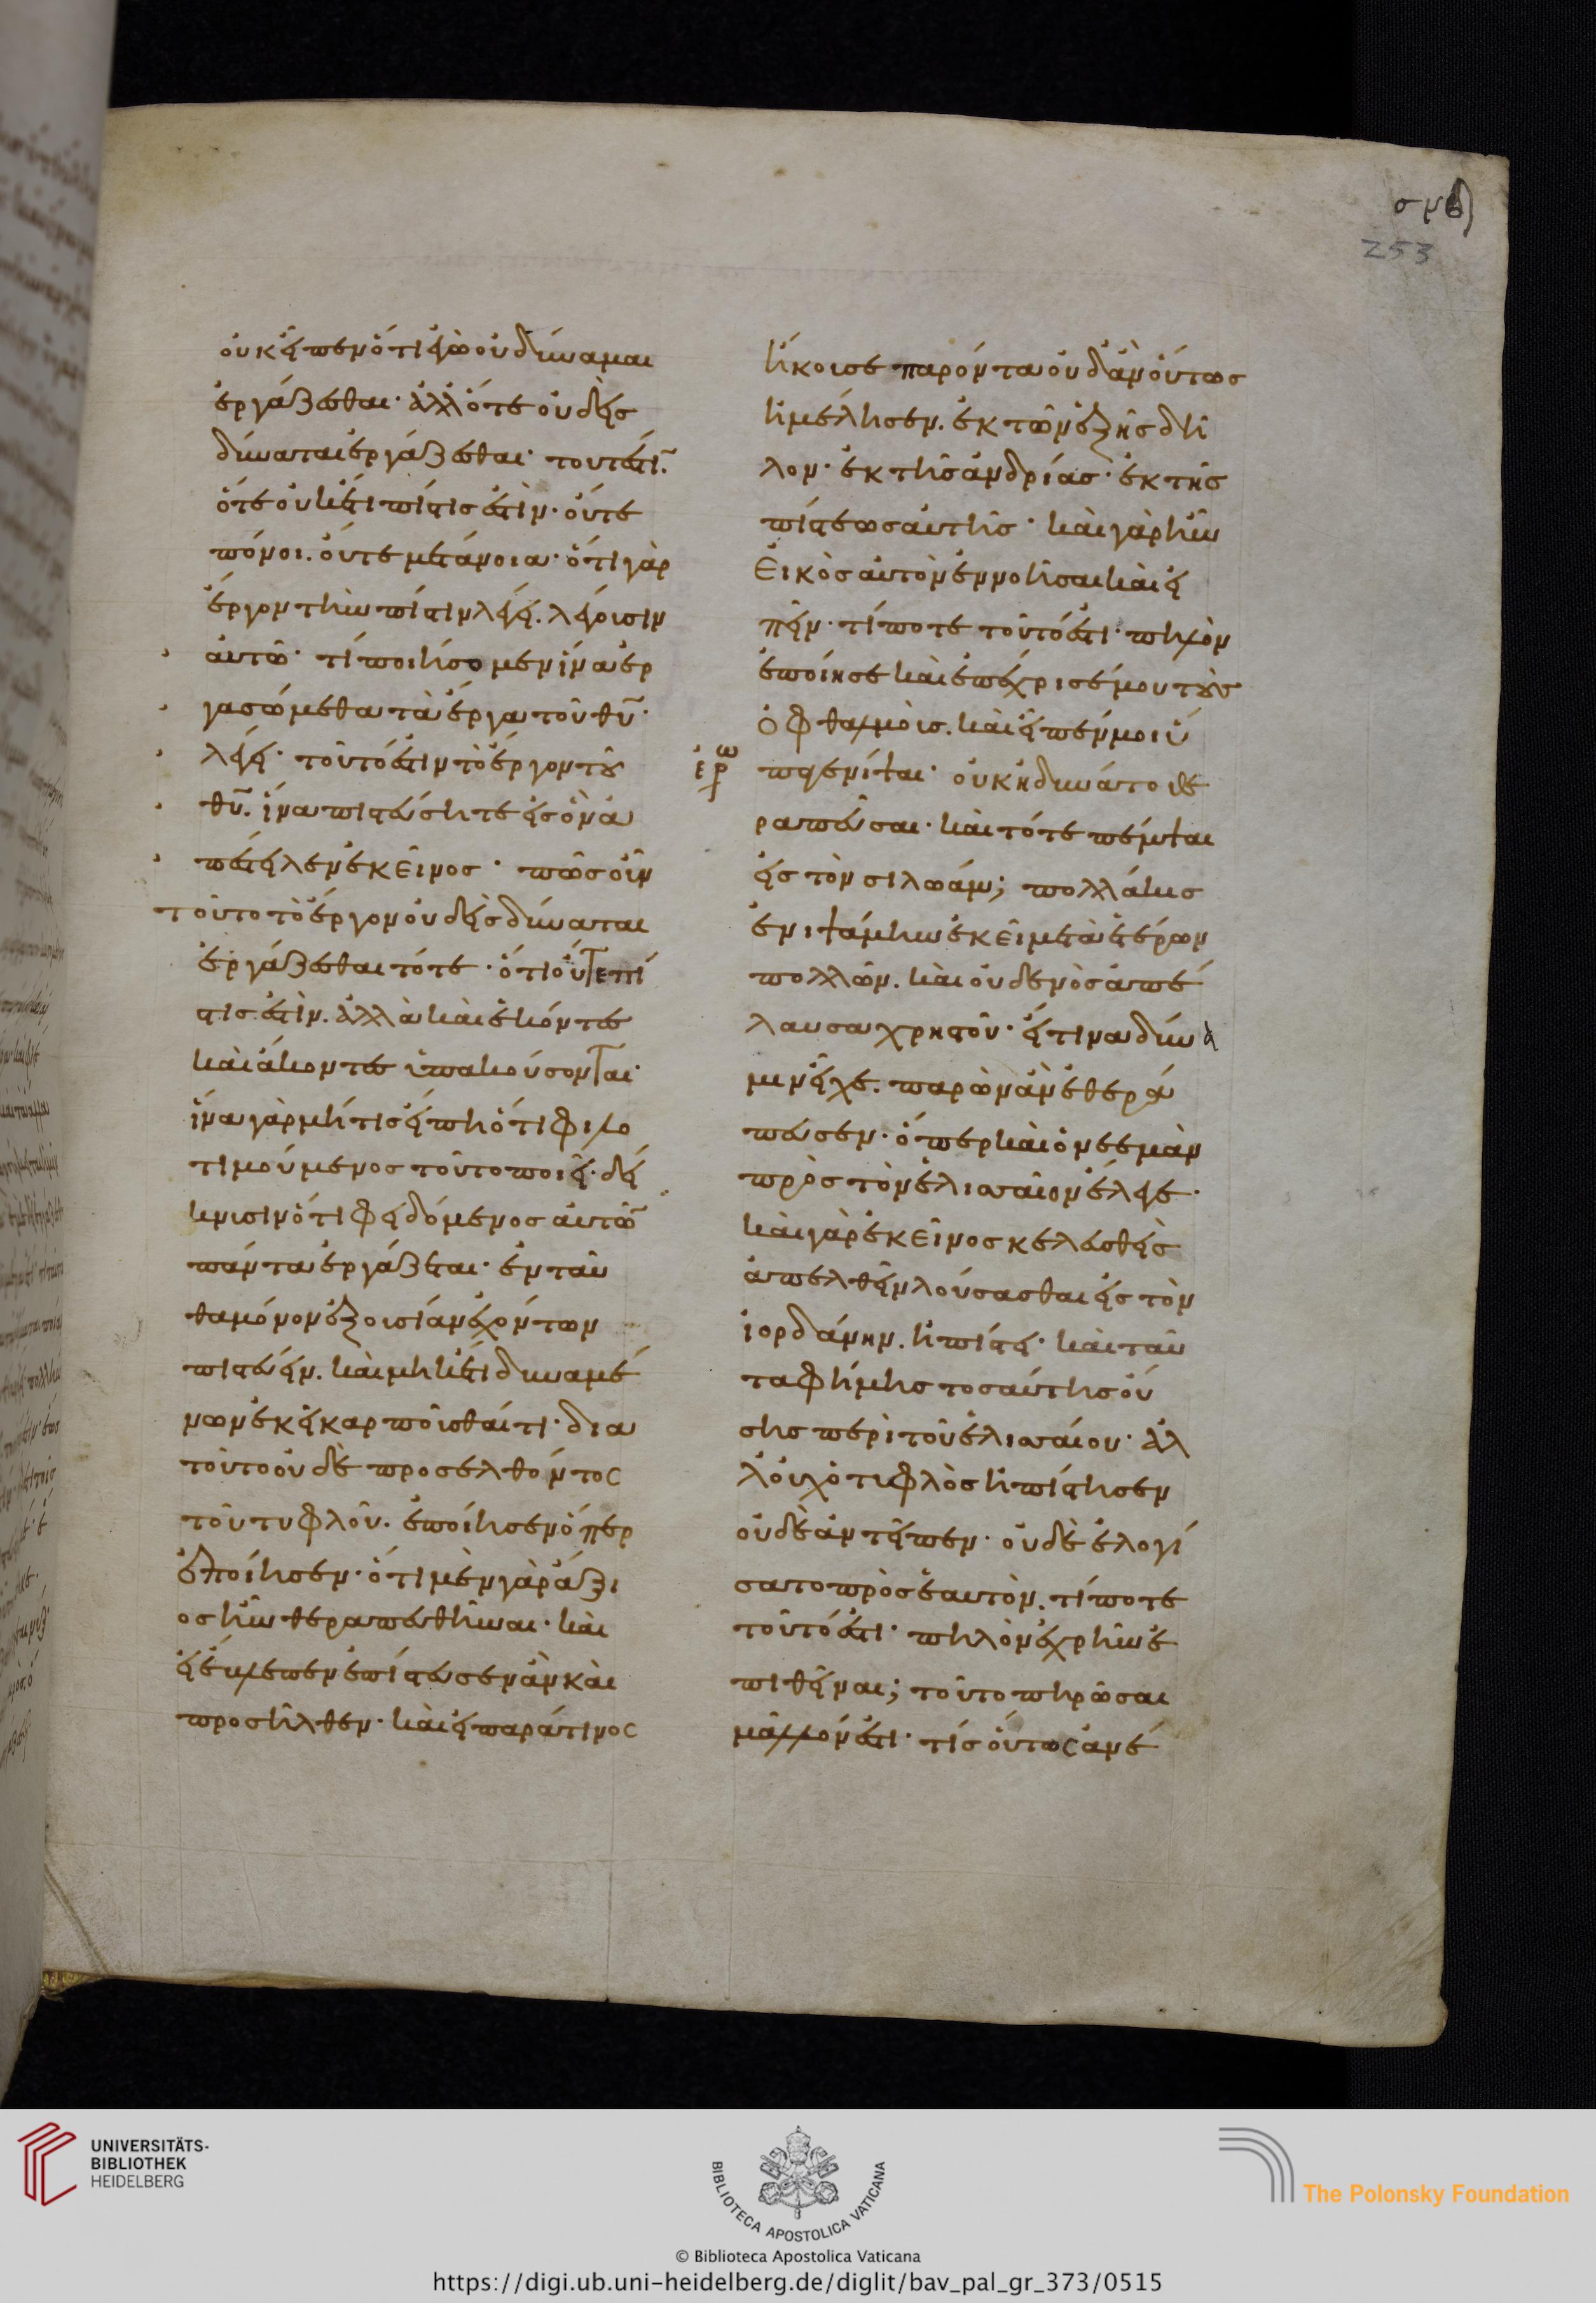 σμθ
253
οὐκ εἶπεν ὅτι ἐγὼ οὐ δύναμαι
ἐργάζεσθαι· ἀλλ' ὅτε οὐδεὶς
δύναται ἐργάζεσθαι· τουτέστιν
ὅτε οὐκέτι πίστις ἐστὶν· οὔτε
πόνοι. οὔτε μετάνοια· ὅτι γὰρ
ἔργον τὴν πίστιν λέγει. λέγουσιν
αὐτῶ· τί ποιήσομεν ἵνα ἐρ
γασώμεθα τὰ ἔργα τοῦ θυ·
λέγει· τοῦτό ἐστιν τὸ ἔργον του
θυ. ἵνα πιστεύσητε εἰς ὃν ἀ
πέστειλεν ἐκεῖνος· πῶς οὖν
τοῦτο τὸ ἔργον οὐδεὶς δύναται
ἐργάζεσθαι τότε· ὅτι οὔτε πί
στις ἐστὶν. ἀλλὰ καὶ ἑκόντες
καὶ ἄκοντες ὑπακούσονται·
ἵνα γὰρ μή τις εἴπη ὅτι φιλο
τιμούμενος τοῦτο ποιεῖ· δεί
κνυσιν ὅτι φειδόμενος αὐτῶν
πάντα ἐργάζεται· ἐνταῦ
θα μόνον ἐξουσίαν ἐχόντων
πιστεύειν. καὶ μηκέτι δυναμέ
νων ἐκεῖ καρποῦσθαί τι· δια
τοῦτο οὐδὲ προσελθόντος
τοῦ τυφλοῦ. ἐποίησεν ὅπερ
ἐποίησεν· ὅτι μὲν γὰρ ἄξι
ος ἦν θεραπευθῆναι· καὶ
εἰ ἔβλεπεν ἐπίστευσεν ἂν καὶ
προσῆλθεν· καὶ εἰ παρά τινος
ἤκουσε παρόντα οὐδ' ἂν οὕτως
ἠμέλησεν. ἐκ τῶν ἑξῆς δῆ
λον· ἐκ τῆς ἀνδρίας· ἐκ τῆς
πίστεως αὐτῆς· καὶ γὰρ ἦν
εἰκὸς αὐτὸν ἐννοῆσαι καὶ εἰ
πεῖν· τί ποτε τοῦτό ἐστι· πηλὸν
ἐποίησε καὶ ἐπέχρισέ μου τοὺς
ὀφθαλμοὺς. καὶ εἶπέν μοι ὕ
παγε νίψαι· οὐκ ἠδύνατο θε
ραπεῦσαι· καὶ τότε πέμψαι
εἰς τὸν σιλωάμ; πολλάκις
ἐνιψάμην ἐκεῖ μετὰ ἑτέρων
πολλῶν. καὶ οὐδενὸς ἀπέ
λαυσα χρηστοῦ· εἴ τινα δύνα
μιν εἶχε. παρὼν ἂν ἐθερά
πευσεν· ὅπερ καὶ ὁ νεεμὰν
πρὸς τὸν ἐλισσαῖον ἔλεγε·
καὶ γὰρ ἐκεῖνος κελευσθεὶς
ἀπελθεῖν λούσασθαι εἰς τὸν
ἰορδάνην. ἠπίστει· καὶ ταῦ
τα φήμης τοσαύτης οὔ
σης περὶ τοῦ ἐλισσαίου· ἀλ
λ' οὐχ ὁ τυφλὸς ἠπίστησεν
οὐδὲ ἀντεῖπεν· οὐδὲ ἐλογί
σατο πρὸς ἑαυτὸν. τί ποτε
τοῦτό ἐστι· πηλὸν ἐχρῆν ἐ
πιθεῖναι; τοῦτο πηρῶσαι
μᾶλλόν ἐστι· τίς οὕτως ἀνέ
UNIVERSITÄTS-
BIBLIOTHEK
HEIDELBERG
BIBLIOTECA APOSTOLICA VATICANA
The Polonsky Foundation
© Biblioteca Apostolica Vaticana
https://digi.ub.uni-heidelberg.de/diglit/bav_pal_gr_373/0515